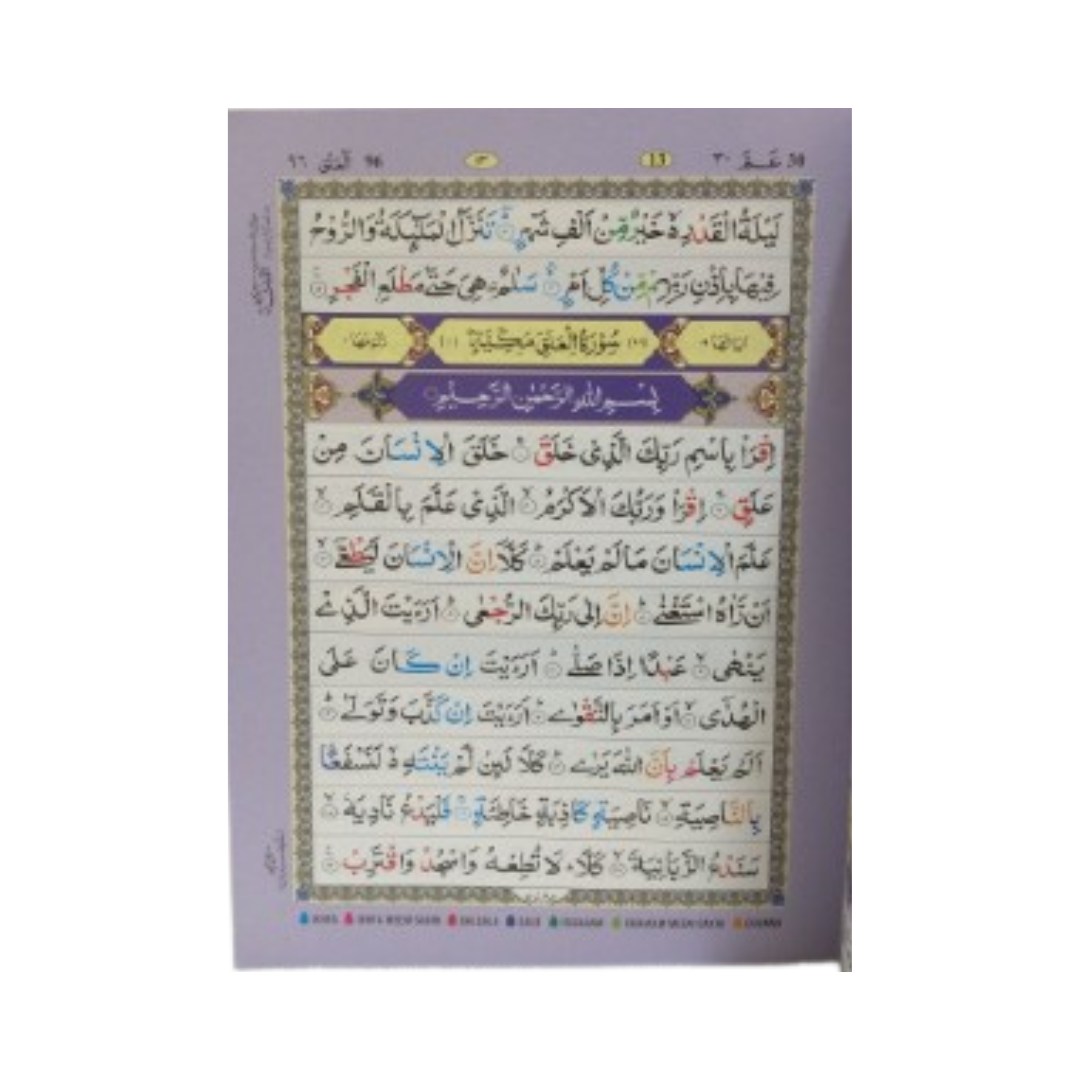 30 عَمَّ ٣٠ 13 ١٣ 96 اَلْعَلَق ٩٦
لَيْلَةُ الْقَدْرِ ۙ خَيْرٌ مِّنْ اَلْفِ شَهْرٍ ۞ تَنَزَّلُ الْمَلٰٓئِكَةُ وَالرُّوْحُ
فِيْهَا بِاِذْنِ رَبِّهِمْ مِّنْ كُلِّ اَمْرٍ ۞ سَلٰمٌ ۛ هِيَ حَتّٰى مَطْلَعِ الْفَجْرِ ۞
اٰيَاتُهَا ١٩ (٩٦) سُوْرَةُ الْعَلَقِ مَكِّيَّةٌ (١) رُكُوْعُهَا ١
بِسْمِ اللّٰهِ الرَّحْمٰنِ الرَّحِيْمِ
اِقْرَاْ بِاسْمِ رَبِّكَ الَّذِيْ خَلَقَ ۞ خَلَقَ الْاِنْسَانَ مِنْ
عَلَقٍ ۞ اِقْرَاْ وَرَبُّكَ الْاَكْرَمُ ۞ الَّذِيْ عَلَّمَ بِالْقَلَمِ ۞
عَلَّمَ الْاِنْسَانَ مَا لَمْ يَعْلَمْ ۞ كَلَّاۤ اِنَّ الْاِنْسَانَ لَيَطْغٰٓى ۞
اَنْ رَّاٰهُ اسْتَغْنٰى ۞ اِنَّ اِلٰى رَبِّكَ الرُّجْعٰى ۞ اَرَءَيْتَ الَّذِيْ
يَنْهٰى ۞ عَبْدًا اِذَا صَلّٰى ۞ اَرَءَيْتَ اِنْ كَانَ عَلَى
الْهُدٰٓى ۞ اَوْ اَمَرَ بِالتَّقْوٰى ۞ اَرَءَيْتَ اِنْ كَذَّبَ وَتَوَلّٰى ۞
اَلَمْ يَعْلَمْ بِاَنَّ اللّٰهَ يَرٰى ۞ كَلَّا لَئِنْ لَّمْ يَنْتَهِ ۙ لَنَسْفَعًۢا
بِالنَّاصِيَةِ ۞ نَاصِيَةٍ كَاذِبَةٍ خَاطِئَةٍ ۞ فَلْيَدْعُ نَادِيَهٗ ۞
سَنَدْعُ الزَّبَانِيَةَ ۞ كَلَّا ؕ لَا تُطِعْهُ وَاسْجُدْ وَاقْتَرِبْ ۞